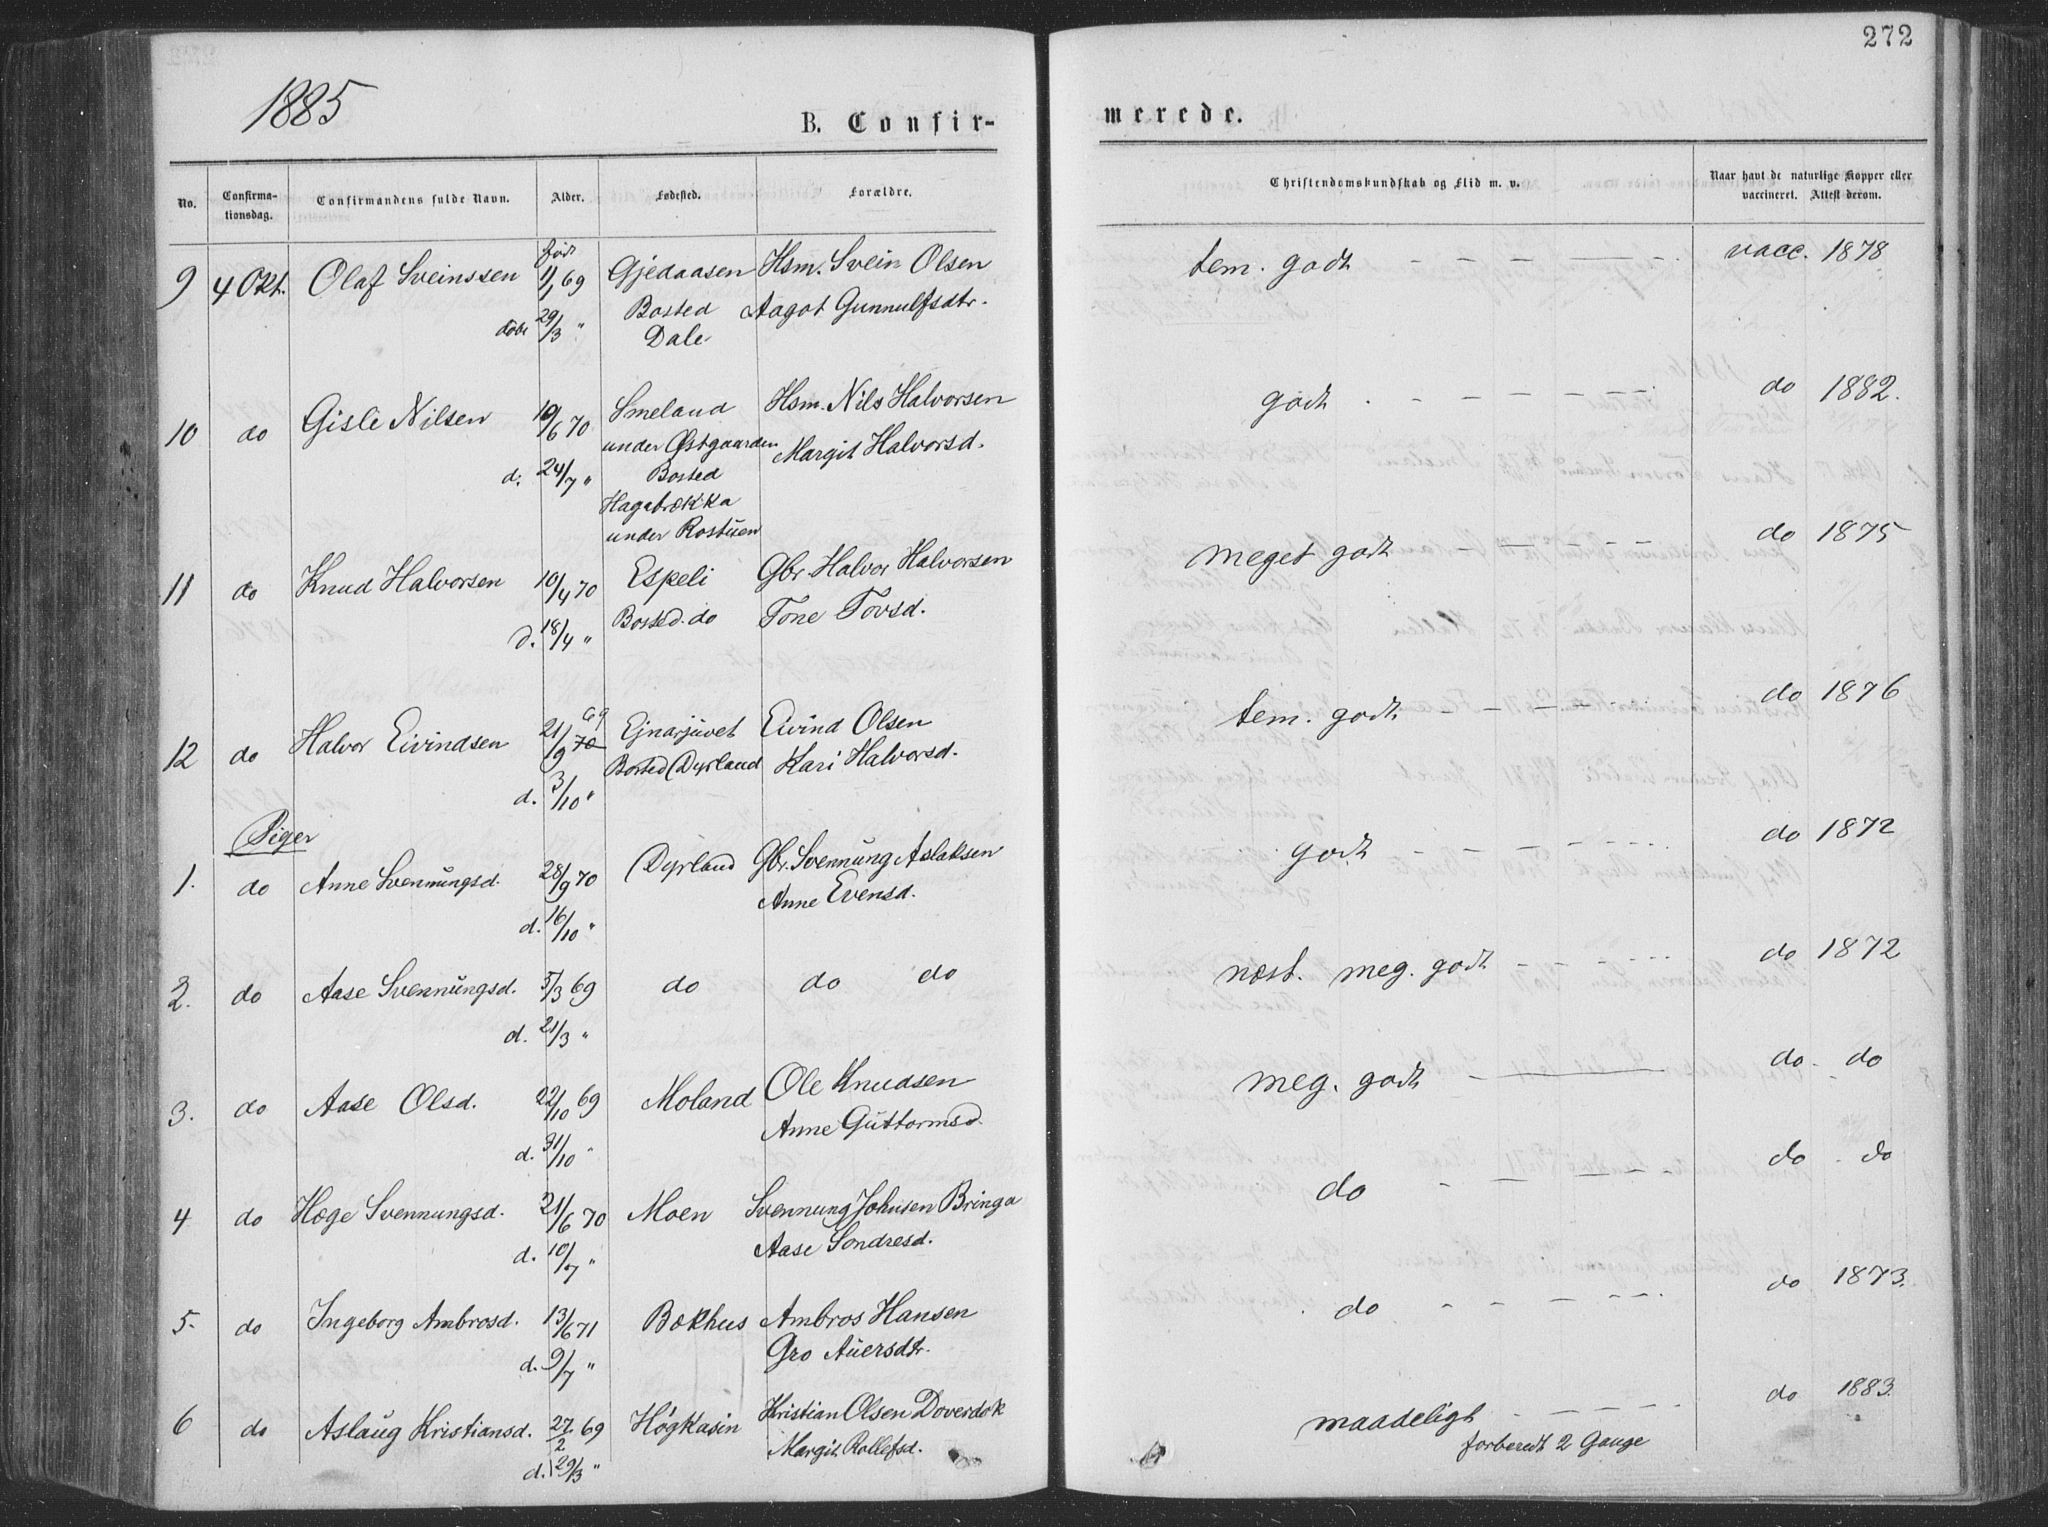 272
1885
B. Confir-
merede.
No.
Confirma-
tionsdag.
Confirmandens fulde Navn.
Alder.
Fødested.
Forældre.
Christendomskundskab og Flid m. v.
Naar havt de naturlige Kopper eller
vaccineret. Attest derom.
9 4 Okt. Olaf Sveinssen født 11/1 69 Gjedaasen Hsm. Svein Olsen tem. godt vacc. 1878
døbt 29/3 " Bosted Aagot Gunnulfsdtr.
Dale
10 do Gisle Nilsen 19/6 70 Smeland Hsm. Nils Halvorsen godt do 1882.
under Østgaarden Margit Halvorsd.
d. 24/7 " Bosted
Hagabrækka
under Rostuen
11 do Knud Halvorsen 10/4 70 Espeli Gbr. Halvor Halvorsen meget godt do 1875
d. 18/4 " Bosted do Tone Tovsd.
12 do Halvor Eivindsen 21/9 70 69 Ejnarjuvet Eivind Olsen tem. godt do 1876
Bosted Dyrland Kari Halvorsd.
d. 3/10 "
Piger
1. do Anne Svennungsd. 28/9 70 Dyrland Gbr. Svennung Aslaksen godt do 1872
d. 16/10 " Anne Evensd.
2. do Aase Svennungsd. 5/3 69 do do do næst. meg. godt do 1872
d. 21/3 "
3. do Aase Olsd. 22/10 69 Moland Ole Knudsen meg. godt do do
d. 31/10 " Anne Guttormsd.
4 do Hæge Svennungsd. 21/6 70 Moen Svennung Johnsen Bringa do do do
d. 10/7 " Aase Sondresd.
5. do Ingeborg Ambrosd. 13/6 71 Bækhus Ambros Hansen do do 1873.
d. 9/7 " Gro Auersdtr.
6 do Aslaug Kristiansd. 27/2 69 Høgkasin Kristian Olsen Doverdok maadeligt do 1883.
d. 29/3 " Margit Rollefsd. forberedt 2 Gange